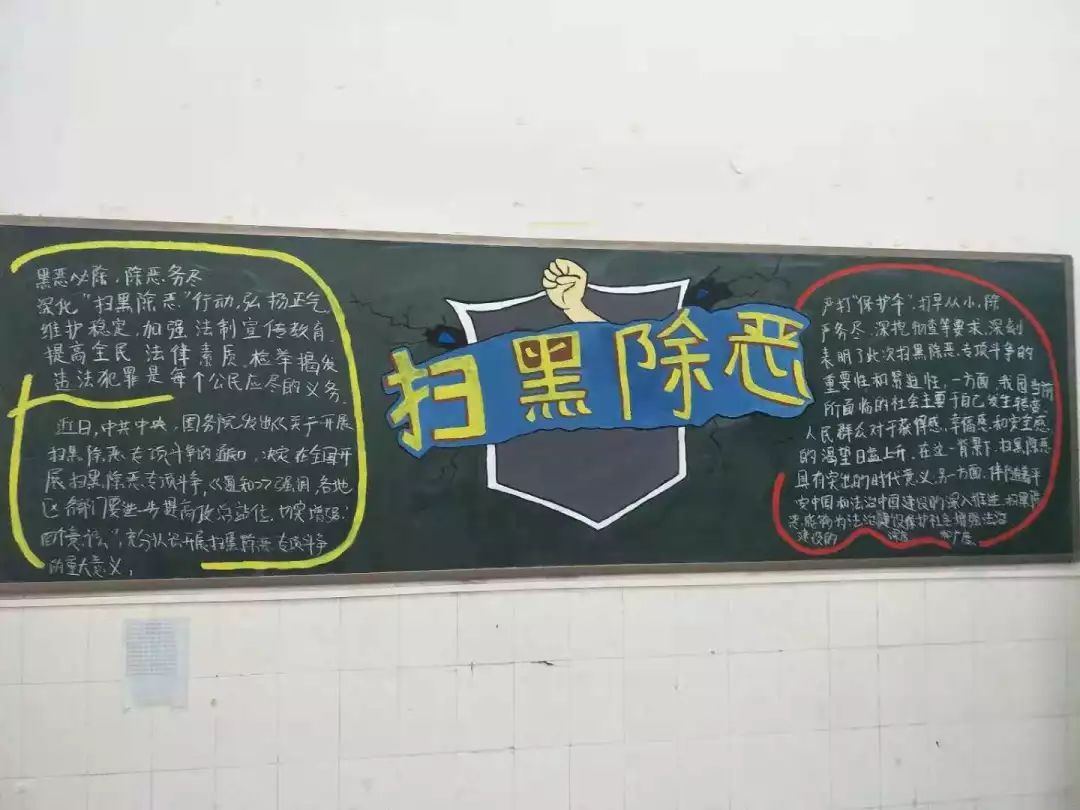 黑恶必除,除恶务尽
深化“扫黑除恶”行动,弘扬正气
维护稳定,加强法制宣传教育,
提高全民法律素质,检举揭发
违法犯罪是每个公民应尽的义务.
近日,中共中央、国务院发出《关于开展
扫黑除恶专项斗争的通知,决定在全国开
展扫黑除恶专项斗争,《通知》强调,各地
区各部门要进一步提高政治站位,切实增强“
四个意识”,充分认识开展扫黑除恶专项斗争
的重大意义,
扫黑除恶
严打“保护伞”,打早从小,除
严务尽,深挖彻查等要求,深刻
表明了此次扫黑除恶专项斗争的
重要性和紧迫性,一方面,我国当前
所面临的社会主要于自己发生转变
人民群众对于获得感、幸福感、和安全感
的渴望日益上升,在这一背景下,扫黑除恶
具有突出的时代意义,另一方面,伴随着平
安中国和法治中国建设的深入推进,扫黑除
恶能够为法治建设维护社会增强法治
建设的 深度 和广度.